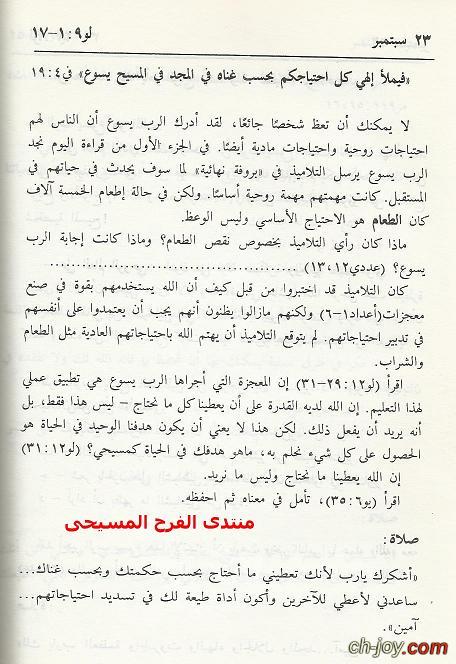 ٢٣ سبتمبر لو٩:١-١٧
«فيملأ إلهي كل احتياجكم بحسب غناه في المجد في المسيح يسوع» في٤:١٩
لا يمكنك أن تعظ شخصًا جائعًا، لقد أدرك الرب يسوع أن الناس لهم
احتياجات روحية واحتياجات مادية أيضًا. في الجزء الأول من قراءة اليوم نجد
الرب يسوع يرسل التلاميذ في «بروفة نهائية» لما سوف يحدث في حياتهم في
المستقبل. كانت مهمتهم مهمة روحية أساسًا. ولكن في حالة إطعام الخمسة آلاف
كان الطعام هو الاحتياج الأساسي وليس الوعظ.
ماذا كان رأي التلاميذ بخصوص نقص الطعام؟ وماذا كانت إجابة الرب
يسوع؟ (عددي١٣،١٢) ................................................
كان التلاميذ قد اختبروا من قبل كيف أن الله يستخدمهم بقوة في صنع
معجزات(أعداد١-٦) ولكنهم مازالوا يظنون أنهم يجب أن يعتمدوا على أنفسهم
في تدبير احتياجاتهم. لم يتوقع التلاميذ أن يهتم الله باحتياجاتهم العادية مثل الطعام
والشراب.
اقرأ (لو١٢:٢٩-٣١) إن المعجزة التي أجراها الرب يسوع هي تطبيق عملي
لهذا التعليم. إن الله لديه القدرة على أن يعطينا كل ما نحتاج - ليس هذا فقط، بل
أنه يريد أن يفعل ذلك. لكن هذا لا يعني أن يكون هدفنا الوحيد في الحياة هو
الحصول على كل شيء نحلم به، ماهو هدفك في الحياة كمسيحي؟ (لو١٢:٣١)
إن الله يعطينا ما نحتاج وليس ما نريد.
اقرأ (يو٦:٣٥)، تأمل في معناه ثم احفظه.
منتدى الفرح المسيحى
صلاة:
«أشكرك يارب لأنك تعطيني ما أحتاج بحسب حكمتك وبحسب غناك...
ساعدني لأعطي للآخرين وأكون أداة طيعة لك في تسديد احتياجاتهم...
آمين».
ch-joy.com